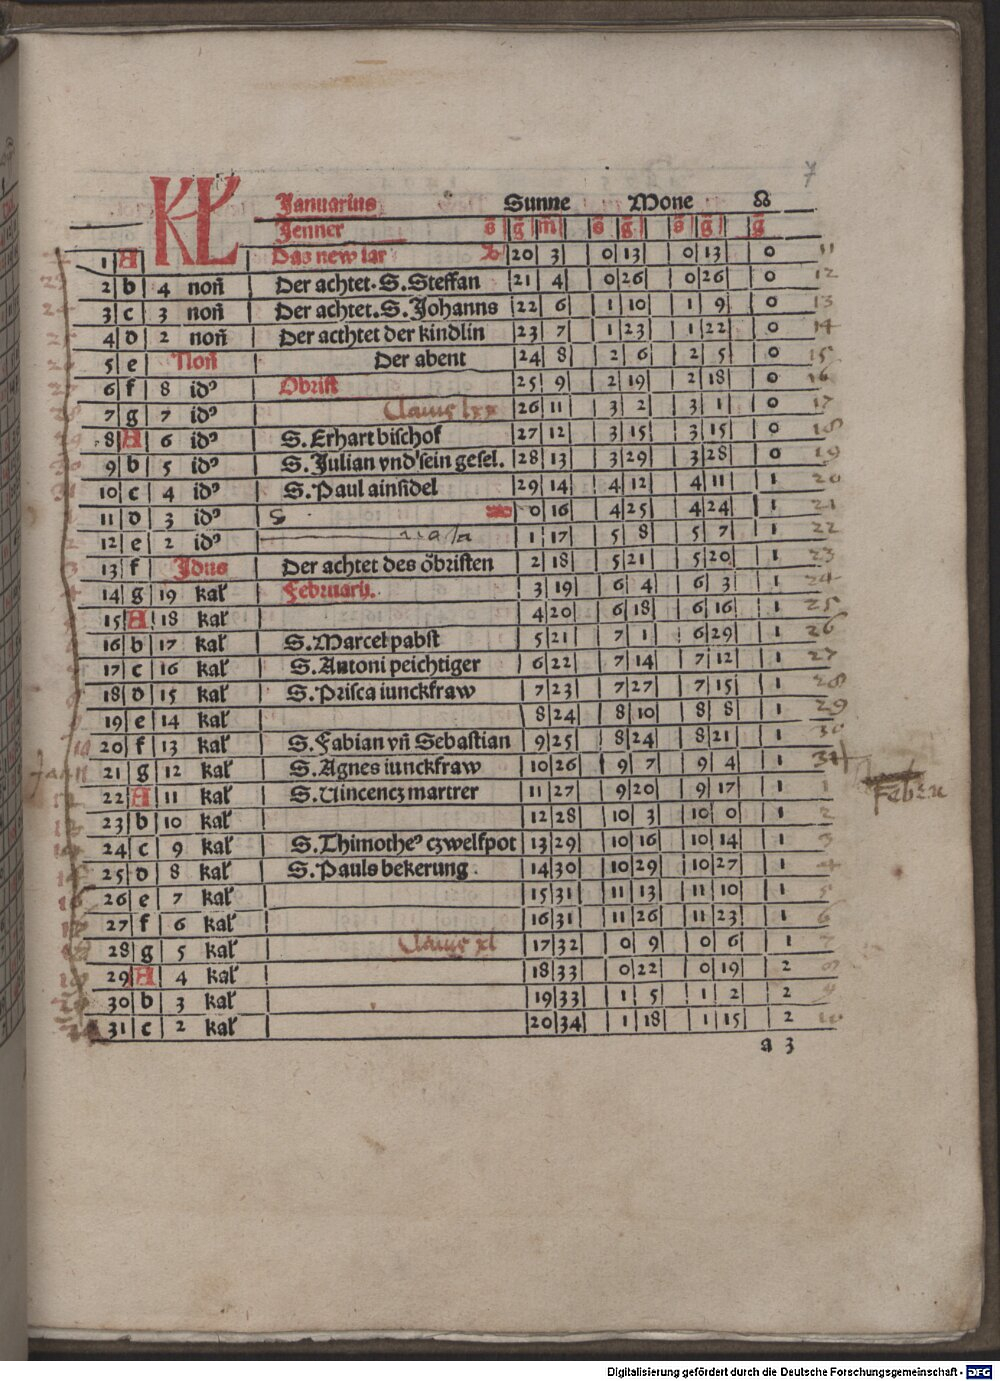 7
KL Januarius Sunne Mone ☊
Jenner s̄ ḡ m̄ s̄ ḡ s̄ ḡ ḡ
1 A Das new iar ♑ 20 3 0 13 0 13 0 11
2 b 4 non̄ Der achtet. S. Steffan 21 4 0 26 0 26 0 12
3 c 3 non̄ Der achtet. S. Johanns 22 6 1 10 1 9 0 13
4 d 2 non̄ Der acthtet der kindlin 23 7 1 23 1 22 0 14
5 e Non̄ Der abent 24 8 2 6 2 5 0 15
6 f 8 idꝰ Obrist 25 9 2 19 2 18 0 16
7 g 7 idꝰ Clauis lxx 26 11 3 2 3 1 0 17
8 A 6 idꝰ S. Erhart bischof 27 12 3 15 3 15 0 18
9 b 5 idꝰ S. Julian vnd sein gesel. 28 13 3 29 3 28 0 19
10 c 4 idꝰ S. Paul ainsidel 29 14 4 12 4 11 1 20
11 d 3 idꝰ S ♒ 0 16 4 25 4 24 1 21
12 e 2 idꝰ 1 17 5 8 5 7 1 22
13 f Jdus Der achtet des öbristen 2 18 5 21 5 20 1 23
14 g 19 kal̄ Februarij. 3 19 6 4 6 3 1 24
15 A 18 kal̄ 4 20 6 18 6 16 1 25
16 b 17 kal̄ S. Marcel pabst 5 21 7 1 6 29 1 26
17 c 16 kal̄ S. Antoni peichtiger 6 22 7 14 7 12 1 27
18 d 15 kal̄ S. Prisca iunckfraw 7 23 7 27 7 15 1 28
19 e 14 kal̄ 8 24 8 10 8 8 1 29
20 f 13 kal̄ S. Fabian vn̄ Sebastian 9 25 8 24 8 21 1 30
21 g 12 kal̄ S. Agnes iunckfraw 10 26 9 7 9 4 1 31
22 A 11 kal̄ S. Uincencz martrer 11 27 9 20 9 17 1 1
23 b 10 kal̄ 12 28 10 3 10 0 1 2
24 c 9 kal̄ S. Thimotheꝰ czwelfpot 13 29 10 16 10 14 1 3
25 d 8 kal̄ S. Pauls bekerung. 14 30 10 29 10 27 1 4
26 e 7 kal̄ 15 31 11 13 11 10 1 5
27 f 6 kal̄ 16 31 11 26 11 23 1 6
28 g 5 kal̄ Clauis xl 17 32 0 9 0 6 1 7
29 A 4 kal̄ 18 33 0 22 0 19 2 8
30 b 3 kal̄ 19 33 1 5 1 2 2 9
31 c 2 kal̄ 20 34 1 18 1 15 2 10
a 3
Digitalisierung gefördert durch die Deutsche Forschungsgemeinschaft - DFG